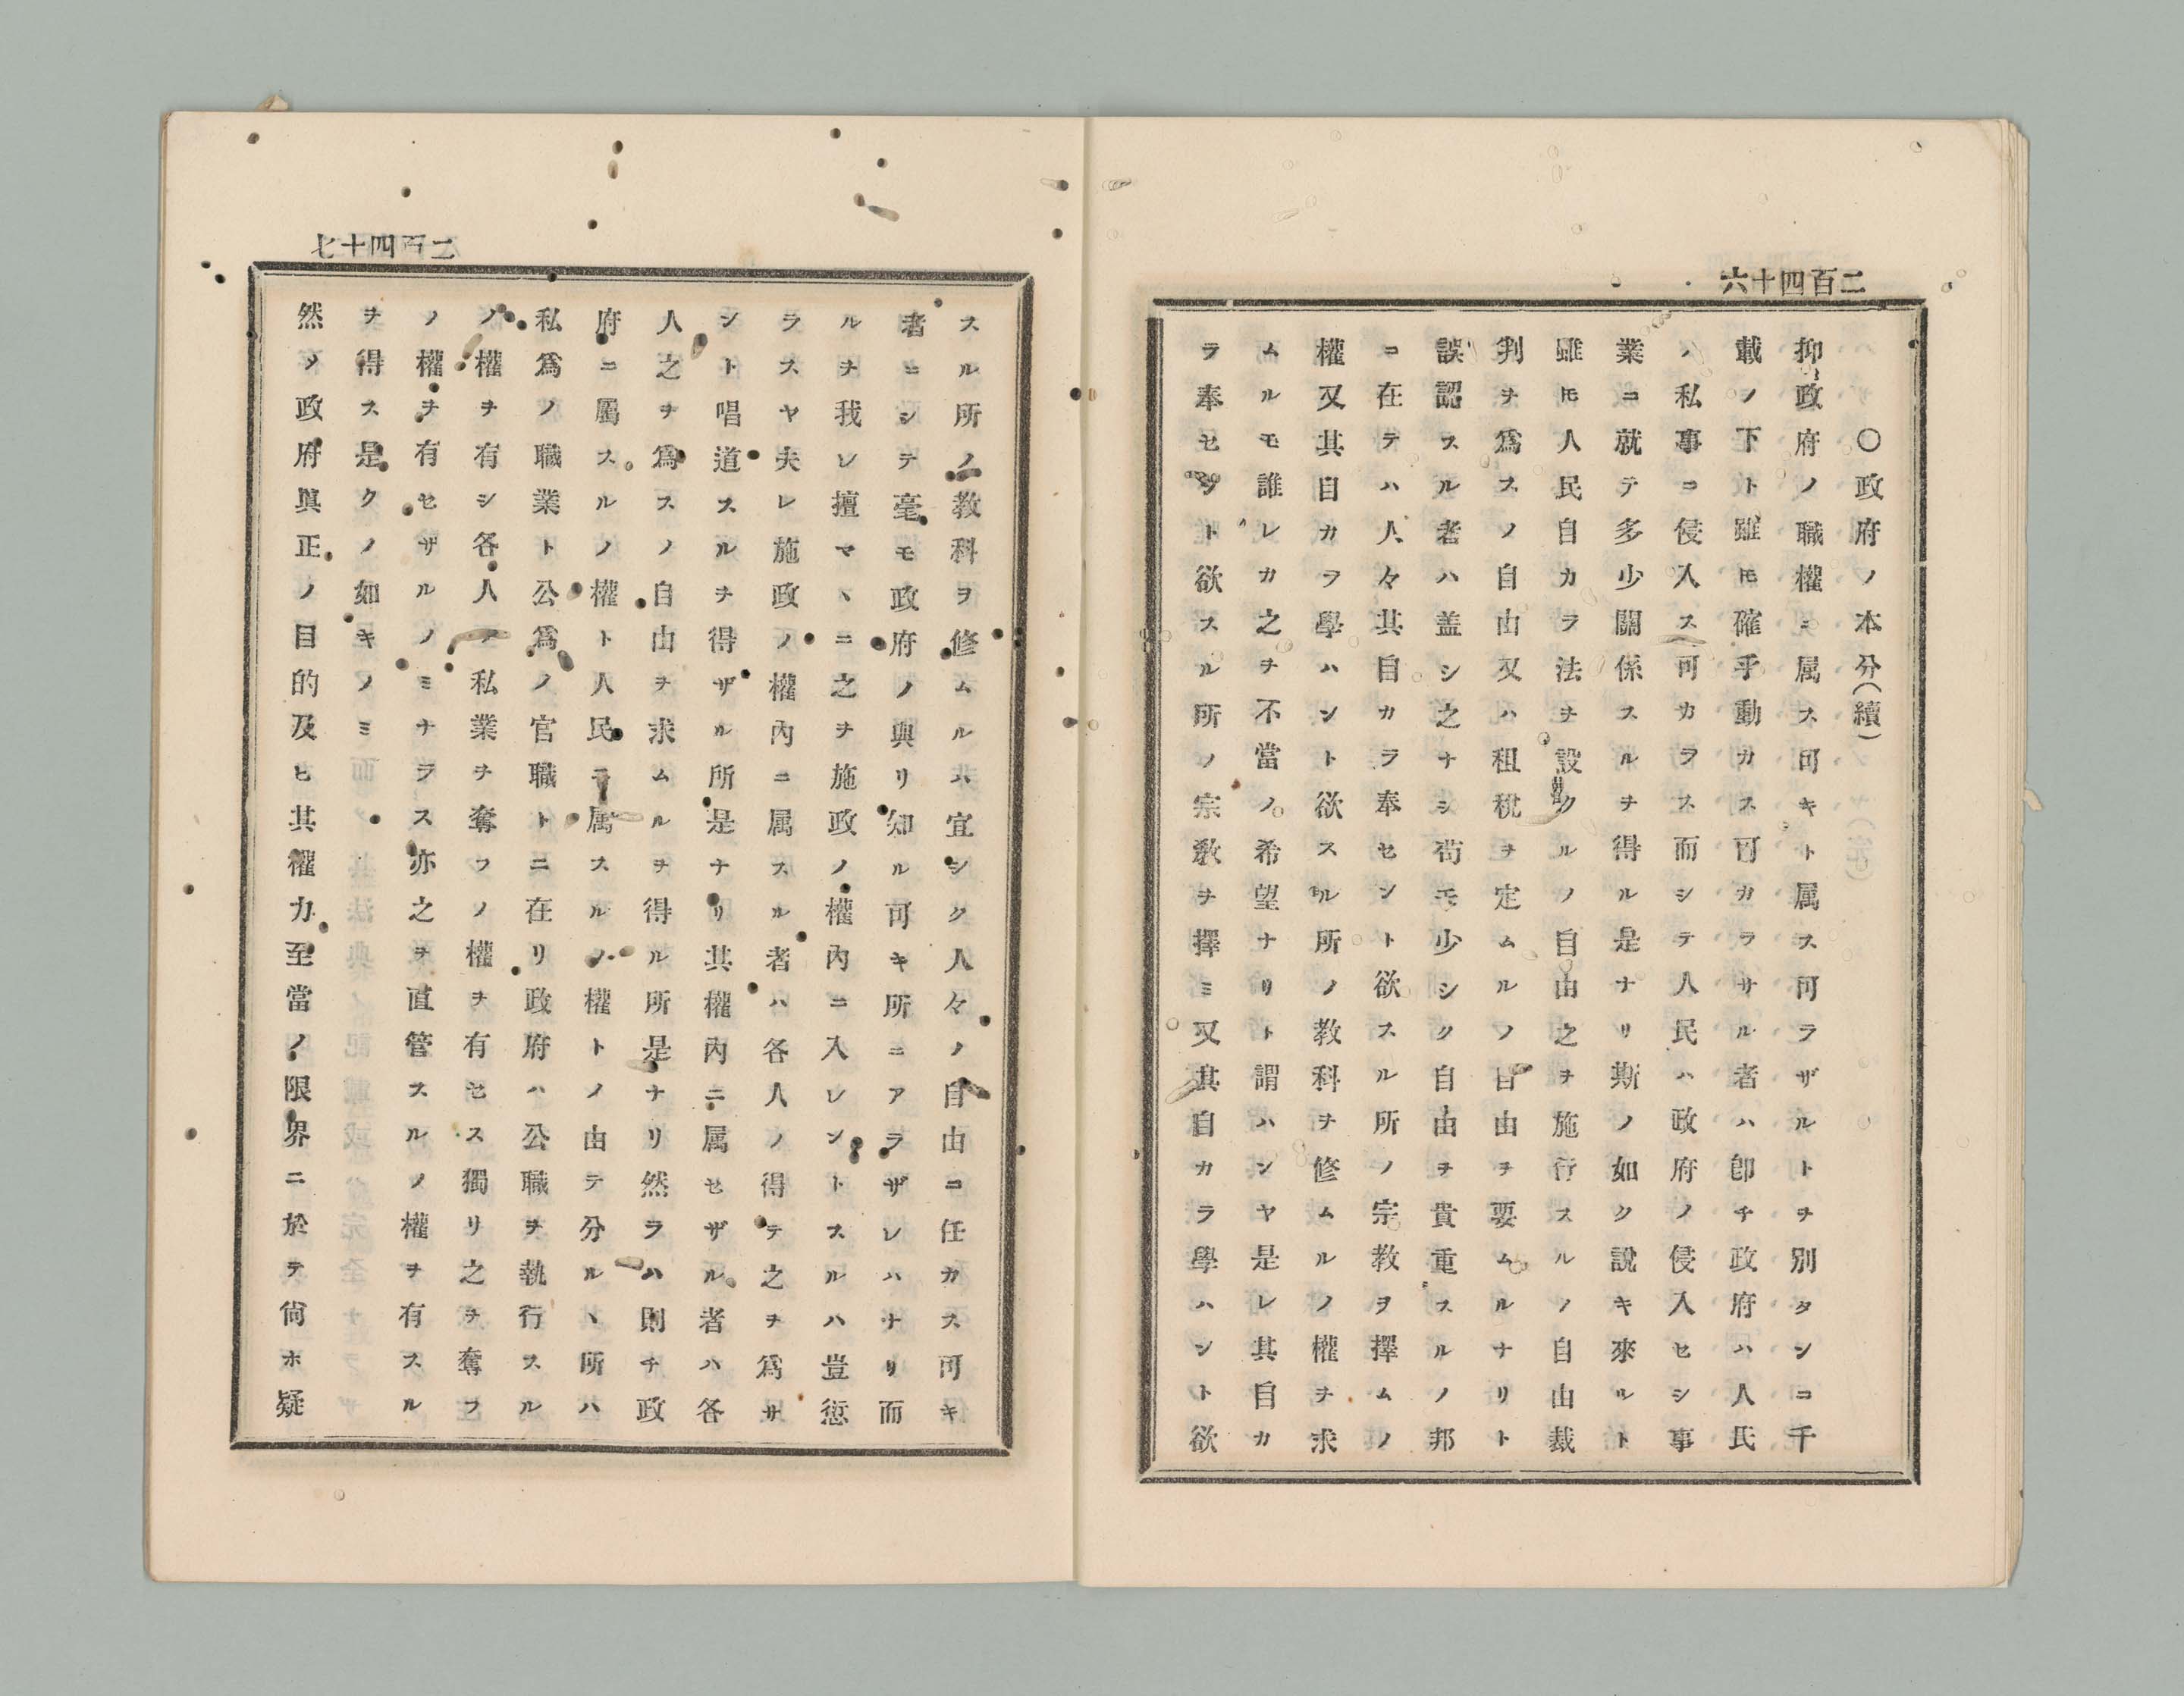 二百四十六
○政府ノ本分(續)
抑政府ノ職權ニ属ス可キト属ス可ラザルトヲ別タンコ千
載ノ下ト雖𪜈確乎動カス可カラサル者ハ卽チ政府ハ人民
ノ私事ニ侵入ス可カラス而シテ人民ハ政府ノ侵入セシ事
業ニ就テ多少關係スルヲ得ル是ナリ斯ノ如ク說キ來ルト
雖𪜈人民自カラ法ヲ設クルノ自由之ヲ施行スルノ自由裁
判ヲ爲スノ自由又ハ租稅ヲ定ムルノ自由ヲ要ムルナリト
誤認スル者ハ盖シ之ナシ苟モ少シク自由ヲ貴重スルノ邦
ニ在テハ人々其自カラ奉セント欲スル所ノ宗教ヲ擇ムノ
權又其自カラ學ハント欲スル所ノ教科ヲ修ムルノ權ヲ求
ムルモ誰レカ之ヲ不當ノ希望ナリト謂ハンヤ是レ其自カ
ラ奉セント欲スル所ノ宗教ヲ擇ミ又其自カラ學ハント欲
二百四十七
スル所ノ教科ヲ修ムルハ宜シク人々ノ自由ニ任カス可キ
者ニシテ毫モ政府ノ與リ知ル可キ所ニアラザレハナリ而
ルヲ我レ擅マヽニ之ヲ施政ノ權內ニ入レントスルハ豈愆
ラスヤ夫レ施政ノ權內ニ属スル者ハ各人ノ得テ之ヲ爲サ
シト唱道スルヲ得ザル所是ナリ其權內ニ属セザル者ハ各
人之ヲ爲スノ自由ヲ求ムルヲ得ル所是ナリ然ラハ則チ政
府ニ屬スルノ權ト人民ニ属スルノ權トノ由テ分ルヽ所ハ
私爲ノ職業ト公爲ノ官職トニ在リ政府ハ公職ヲ執行スル
ノ權ヲ有シ各人ノ私業ヲ奪フノ權ヲ有セス獨リ之ヲ奪フ
ノ權ヲ有セザルノミナラス亦之ヲ直管スルノ權ヲ有スル
ヲ得ス是クノ如キノミ
然メ政府眞正ノ目的及ヒ其權力至當ノ限界ニ於テ尙ホ疑